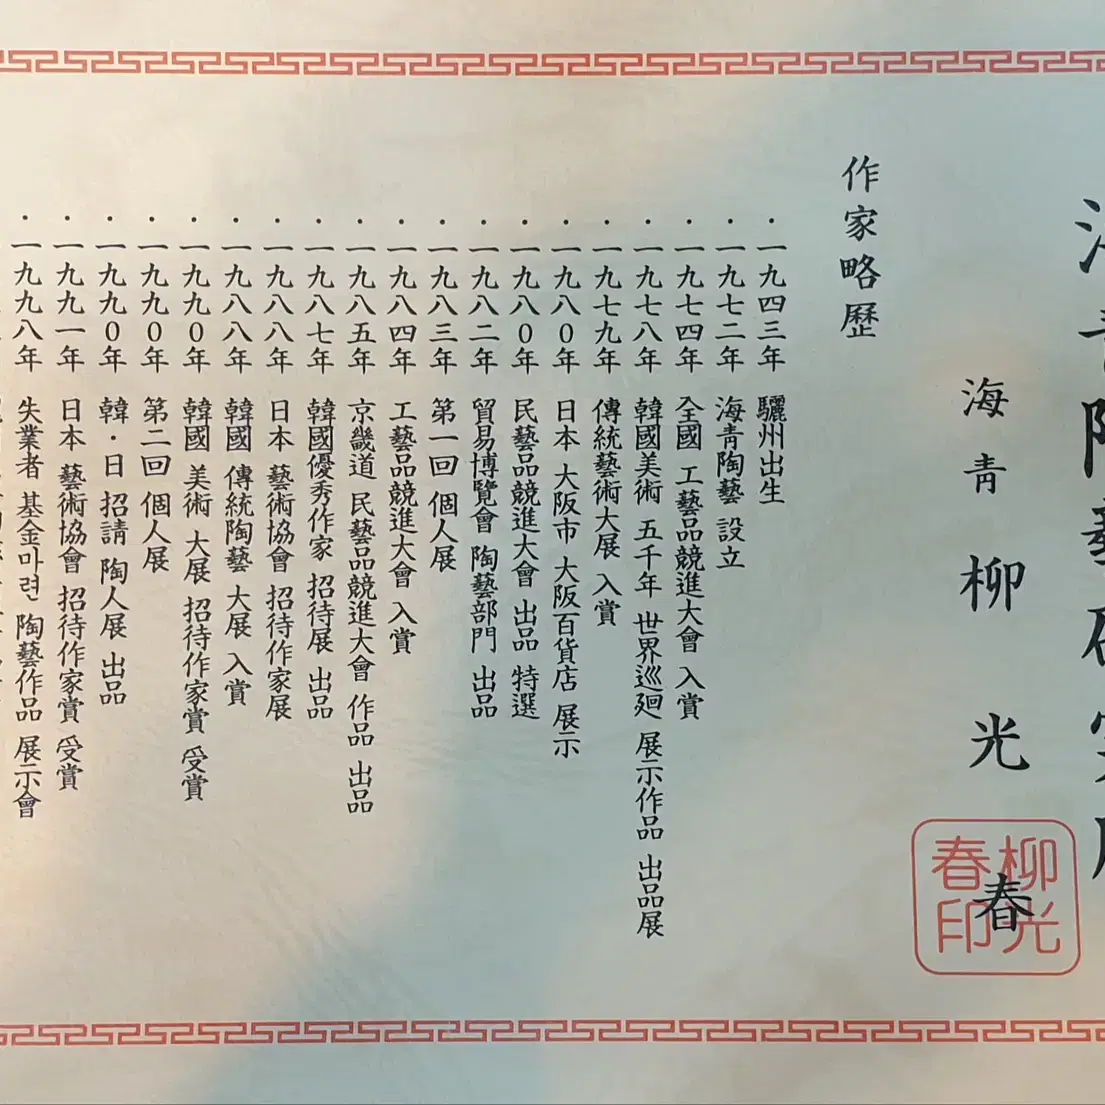 海青 柳光春
柳光春印
作家略歷
·一九四三年 驪州出生
·一九七二年 海靑陶藝 設立
·一九七四年 全國 工藝品競進大會 入賞
·一九七八年 韓國美術 五千年 世界巡廻 展示作品 出品展
·一九七九年 傳統藝術大展 入賞
·一九八0年 日本 大阪市 大阪百貨店 展示
·一九八0年 民藝品競進大會 出品 特選
·一九八二年 貿易博覽會 陶藝部門 出品
·一九八三年 第一回 個人展
·一九八四年 工藝品競進大會 入賞
·一九八五年 京畿道 民藝品競進大會 作品 出品
·一九八七年 韓國優秀作家 招待展 出品
·一九八八年 日本 藝術協會 招待作家展
·一九八八年 韓國 傳統陶藝 大展 入賞
·一九九0年 韓國 美術 大展 招待作家賞 受賞
·一九九0年 第二回 個人展
·一九九0年 韓·日 招請 陶人展 出品
·一九九一年 日本 藝術協會 招待作家賞 受賞
·一九九八年 失業者 基金마련 陶藝作品 展示會